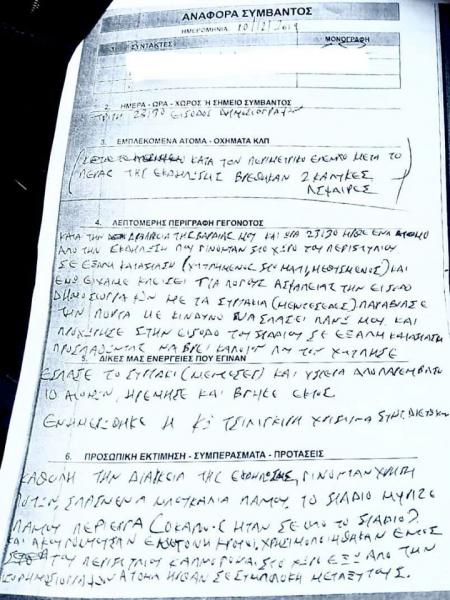 ΑΝΑΦΟΡΑ ΣΥΜΒΑΝΤΟΣ
ΗΜΕΡΟΜΗΝΙΑ 10/12/2019
1. ΣΥΝΤΑΚΤΕΣ ΜΟΝΟΓΡΑΦΗ
2. ΗΜΕΡΑ - ΩΡΑ - ΧΩΡΟΣ Ή ΣΗΜΕΙΟ ΣΥΜΒΑΝΤΟΣ
ΤΡΙΤΗ 23:30 ΕΙΣΟΔΟΣ ΔΗΜΟΣΙΟΓΡΑΦΩΝ
3. ΕΜΠΛΕΚΟΜΕΝΑ ΑΤΟΜΑ - ΟΧΗΜΑΤΑ ΚΛΠ
ΚΑΤΑ ΤΟΝ ΠΕΡΙΜΕΤΡΙΚΟ ΕΛΕΓΧΟ ΜΕΤΑ ΤΟ
ΠΕΡΑΣ ΤΗΣ ΕΚΔΗΛΩΣΗΣ ΒΡΕΘΗΚΑΝ 2 ΚΑΛΥΚΕΣ
ΑΣΦΑΙΡΕΣ
4. ΛΕΠΤΟΜΕΡΗΣ ΠΕΡΙΓΡΑΦΗ ΓΕΓΟΝΟΤΟΣ
ΚΑΤΑ ΤΗΝ ΔΙΑΡΚΕΙΑ ΤΗΣ ΒΑΡΔΙΑΣ ΜΟΥ ΚΑΙ ΩΡΑ 23:30 ΗΡΘΕ ΕΝΑ ΑΤΟΜΟ
ΑΠΟ ΤΗΝ ΕΚΔΗΛΩΣΗ ΠΟΥ ΓΙΝΟΤΑΝ ΣΤΟ ΧΩΡΟ ΤΟΥ ΠΕΡΙΣΤΥΛΙΟΥ
ΣΕ ΕΞΑΛΗ ΚΑΤΑΣΤΑΣΗ (ΧΤΥΠΗΜΕΝΟΣ ΣΤΟ ΜΑΤΙ, ΜΕΘΥΣΜΕΝΟΣ) ΚΑΙ
ΕΝΩ ΕΙΧΑΜΕ ΚΛΕΙΣΕΙ ΓΙΑ ΛΟΓΟΥΣ ΑΣΦΑΛΕΙΑΣ ΤΗΝ ΕΙΣΟΔΟ
ΔΗΜΟΣΙΟΓΡΑΦΩΝ ΜΕ ΤΑ ΣΥΡΤΑΚΙΑ (ΜΕΝΤΕΣΕΔΕΣ) ΠΑΡΑΒΙΑΣΕ
ΤΗΝ ΠΟΡΤΑ ΜΕ ΚΙΝΔΥΝΟ ΝΑ ΣΠΑΣΕΙ ΠΑΝΩ ΜΟΥ ΚΑΙ
ΠΡΟΧΩΡΗΣΕ ΣΤΗΝ ΕΙΣΟΔΟ ΤΟΥ ΣΤΑΔΙΟΥ ΣΕ ΕΞΑΛΗ ΚΑΤΑΣΤΑΣΗ
ΠΡΟΣΠΑΘΩΝΤΑΣ ΝΑ ΒΡΕΙ ΚΑΠΟΙΟΝ ΠΟΥ ΤΟΝ ΧΤΥΠΗΣΕ
ΔΙΚΕΣ ΜΑΣ ΕΝΕΡΓΕΙΕΣ ΠΟΥ ΕΓΙΝΑΝ
ΕΣΠΑΣΕ ΤΟ ΣΥΡΤΑΚΙ (ΜΕΝΤΕΣΕΣ) ΚΑΙ ΥΣΤΕΡΑ ΑΠΟ ΠΑΡΕΜΒΑΣΗ
10 ΑΤΟΜΩΝ, ΗΡΕΜΗΣΕ ΚΑΙ ΒΓΗΚΕ ΕΚΤΟΣ
ΕΝΗΜΕΡΩΘΗΚΕ Η Κα ΤΣΙΛΙΓΚΙΡΗ ΧΡΙΣΤΙΝΑ
6. ΠΡΟΣΩΠΙΚΗ ΕΚΤΙΜΗΣΗ - ΣΥΜΠΕΡΑΣΜΑΤΑ - ΠΡΟΤΑΣΕΙΣ
ΚΑΘΟΛΗ ΤΗΝ ΔΙΑΡΚΕΙΑ ΤΗΣ ΕΚΔΗΛΩΣΗΣ, ΓΙΝΟΤΑΝ ΧΡΗΣΗ
ΠΟΤΩΝ, ΣΠΑΣΜΕΝΑ ΜΠΟΥΚΑΛΙΑ ΠΑΝΤΟΥ, ΤΟ ΣΤΑΔΙΟ ΜΥΡΙΖΕ
ΠΑΝΤΟΥ ΠΕΡΙΕΡΓΑ (Ο ΚΑΠΝΟΣ ΗΤΑΝ ΣΕ ΟΛΟ ΤΟ ΣΤΑΔΙΟ)
ΚΑΙ ΑΚΟΥΓΟΝΤΟΥΣΑΝ ΕΚΚΩΦΑΝΤΙΚΟΙ ΚΡΟΤΟΙ, ΧΡΗΣΙΜΟΠΟΙΗΘΗΚΑΝ ΕΝΤΟΣ
ΤΟΥ ΠΕΡΙΣΤΥΛΙΟΥ ΚΑΠΝΟΓΟΝΑ. ΣΤΟ ΧΩΡΟ ΕΞΩ ΑΠΟ ΤΗΝ
ΔΗΜΟΣΙΟΓΡΑΦΩΝ ΑΤΟΜΑ ΗΡΘΑΝ ΣΕ ΣΥΜΠΛΟΚΗ ΜΕΤΑΞΥ ΤΟΥΣ.